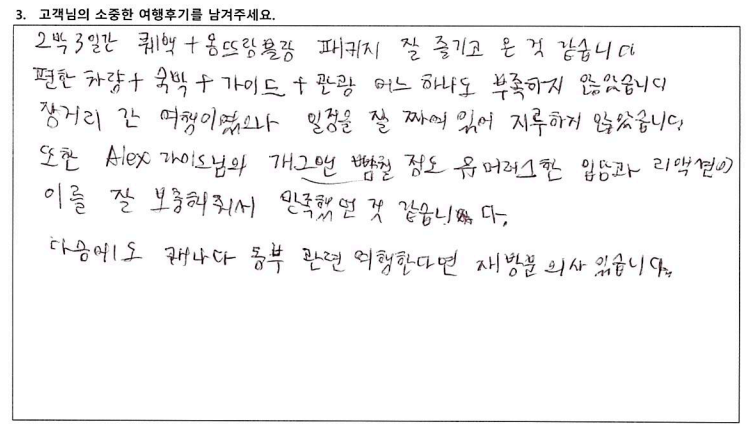 3. 고객님의 소중한 여행후기를 남겨주세요.
2박3일간 퀘백 + 몽뜨랑블랑 패키지 잘 즐기고 온 것 같습니다
편한 차량 + 숙박 + 가이드 + 관광 어느 하나도 부족하지 않았습니다
장거리 간 여행이였으나 일정을 잘 짜여 있어 지루하지 않았습니다.
또한 Alex 가이드님의 개그맨 뺨칠 정도 유머러스한 입담과 리액션이
이를 잘 보충해줘서 만족했던 것 같습니다.
다음에도 캐나다 동부 관련 여행한다면 재방문 의사 있습니다.